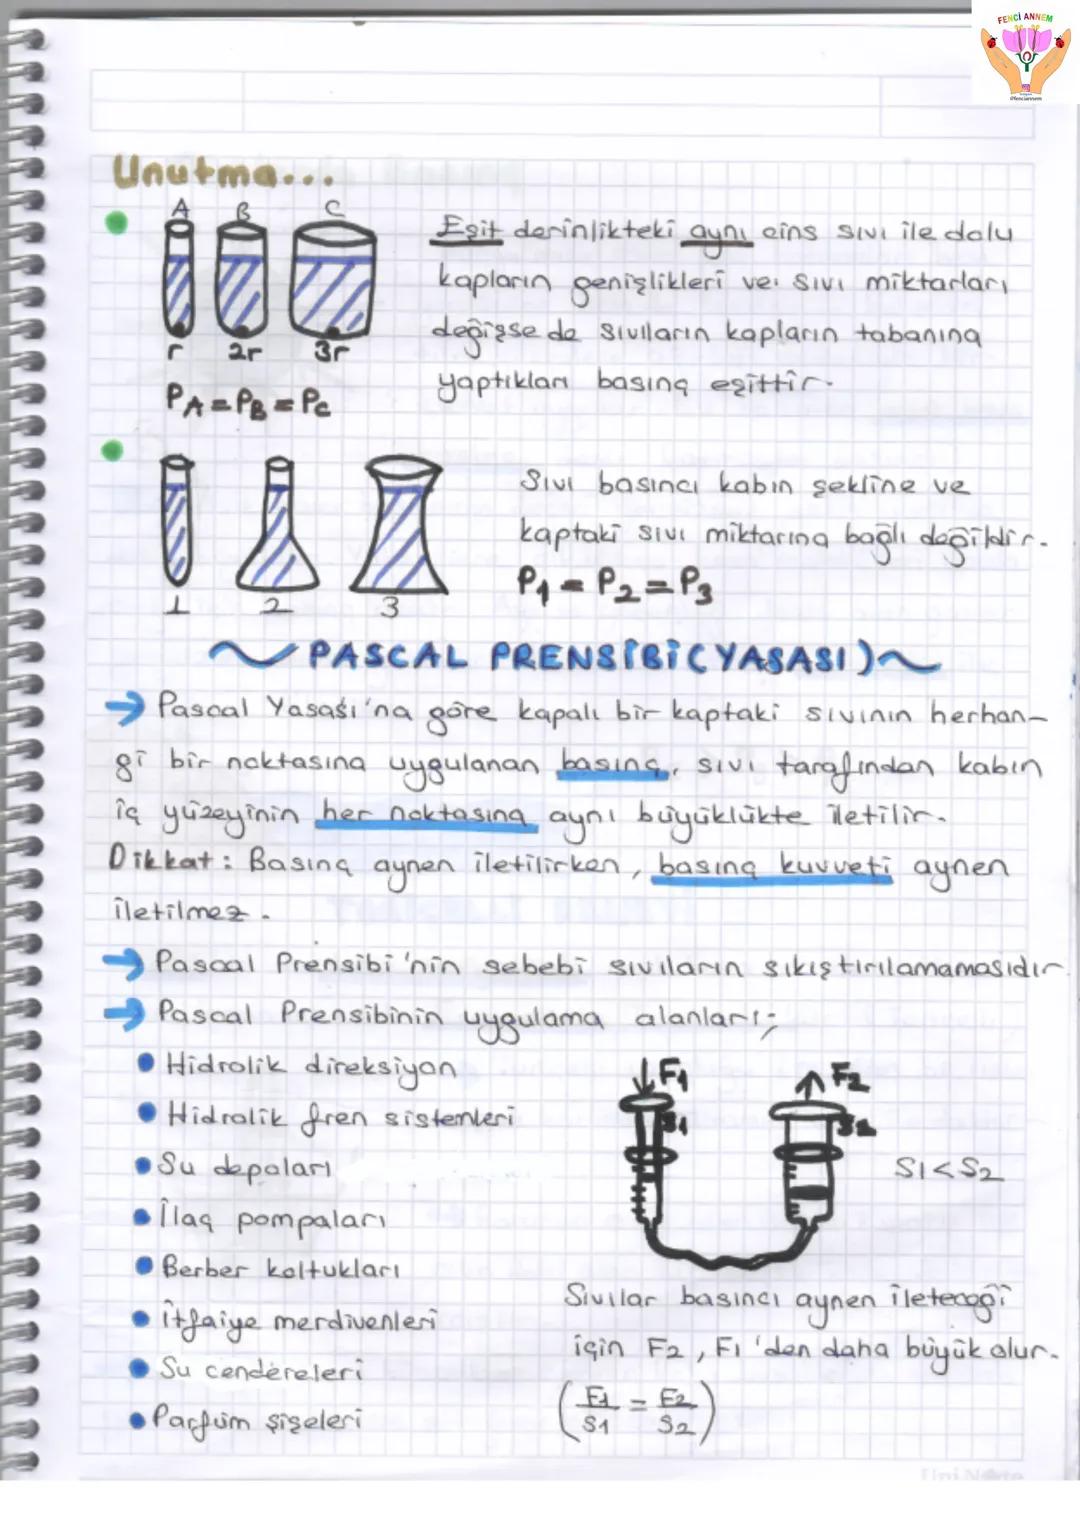 FENCİ ANNEM
@fenciannem
Unutma...
A B C
Eşit derinlikteki aynı cins sıvı ile dolu
kapların genişlikleri ve sıvı miktarları
değişse de sıvıların kapların tabanına
yaptıkları basınç eşittir.
r 2r 3r
PA = PB = Pc
Sıvı basıncı kabın şekline ve
kaptaki sıvı miktarına bağlı değildir.
P1 = P2 = P3
1 2 3
~ PASCAL PRENSİBİ (YASASI) ~
→ Pascal Yasası'na göre kapalı bir kaptaki sıvının herhan-
gi bir noktasına uygulanan basınç, sıvı tarafından kabın
iç yüzeyinin her noktasına aynı büyüklükte iletilir.
Dikkat : Basınç aynen iletilirken, basınç kuvveti aynen
iletilmez.
→ Pascal Prensibi'nin sebebi sıvıların sıkıştırılamamasıdır.
→ Pascal Prensibinin uygulama alanları;
• Hidrolik direksiyon
• Hidrolik fren sistemleri
• Su depoları
• İlaç pompaları
• Berber koltukları
• İtfaiye merdivenleri
• Su cendereleri
• Parfüm şişeleri
F1 F2
S1 S2
S1 < S2
Sıvılar basıncı aynen ileteceği
için F2, F1'den daha büyük olur.
(F1/S1 = F2/S2)